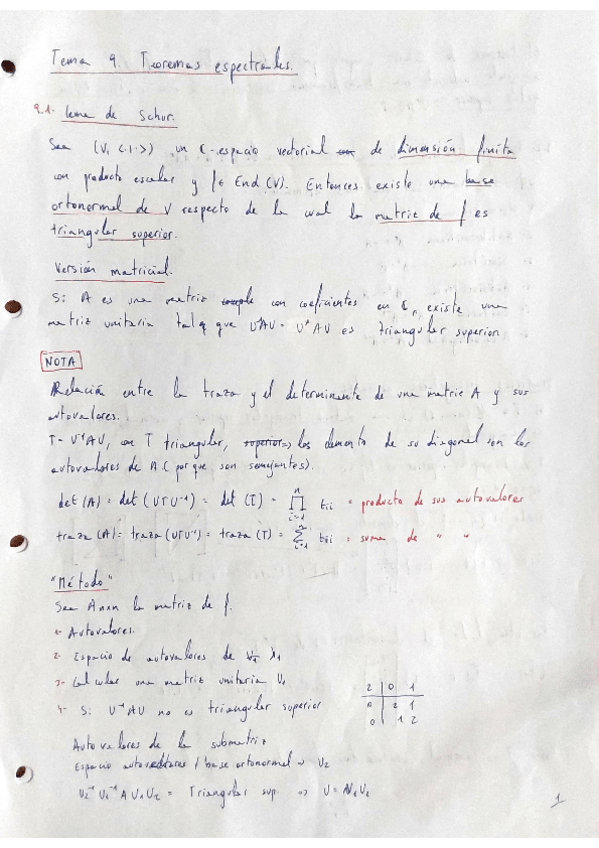 Tema 9. Teoremas espectrales.
9.1- Lema de Schur.
Sea (V, <·|·>) un ℂ-espacio vectorial de dimensión finita
con producto escalar y f ∈ End (V). Entonces existe una base
ortonormal de V respecto de la cual la matriz de f es
triangular superior.
Versión matricial.
Si A es una matriz compleja con coeficientes en ℂ, existe una
matriz unitaria tal q que U⁻¹AU = U*AU es triangular superior
NOTA
Relación entre la traza y el determinante de una matriz A y sus
autovalores.
T = U⁻¹AU, con T triangular, superior => los elemento de su diagonal son los
autovalores de A (porque son semejantes).
det (A) = det (UTU⁻¹) = det (T) = ∏ i=1 n tii = producto de sus autovalores
traza (A) = traza (UTU⁻¹) = traza (T) = ∑ i=1 n tii = suma de " "
"Método"
Sea Anxn la matriz de f.
1- Autovalores.
2- Espacio de autovalores de λ1
3- Calcular una matriz unitaria U1
4- Si U⁻¹AU no es triangular superior
2 | 0 1
0 | 2 1
0 | 1 2
Autovalores de la submatriz
Espacio autovectores / base ortonormal → U2
U2⁻¹ U1⁻¹ A U1 U2 = Triangular sup. => U = U1U2
1